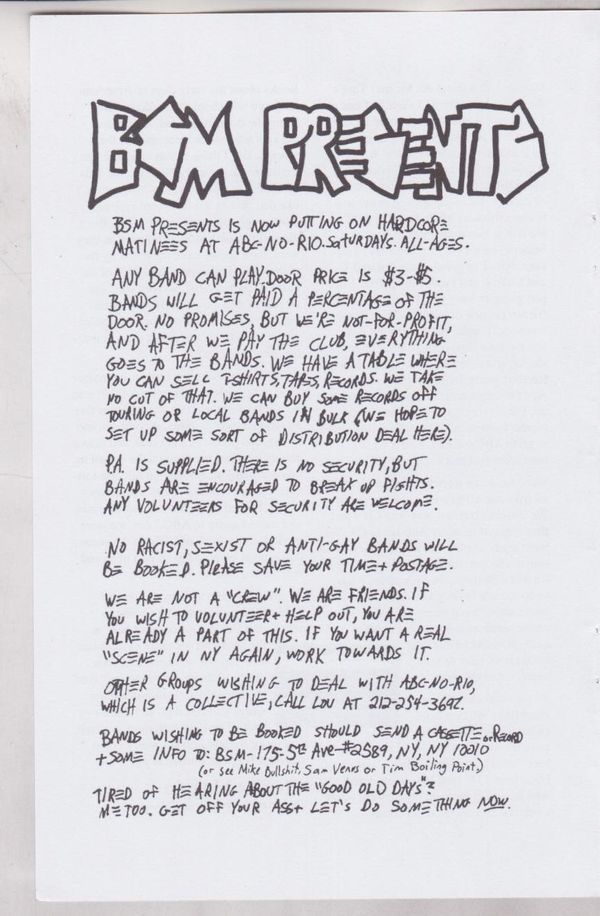 BSM PRESENTS
BSM PRESENTS IS NOW PUTTING ON HARDCORE
MATINEES AT ABC-NO-RIO. SATURDAYS. ALL-AGES.
ANY BAND CAN PLAY. DOOR PRICE IS $3-$5.
BANDS WILL GET PAID A PERCENTAGE OF THE
DOOR. NO PROMISES, BUT WE'RE NOT-FOR-PROFIT,
AND AFTER WE PAY THE CLUB, EVERYTHING
GOES TO THE BANDS. WE HAVE A TABLE WHERE
YOU CAN SELL T-SHIRTS, TAPES, RECORDS. WE TAKE
NO CUT OF THAT. WE CAN BUY SOME RECORDS OFF
TOURING OR LOCAL BANDS IN BULK (WE HOPE TO
SET UP SOME SORT OF DISTRIBUTION DEAL HERE).
P.A. IS SUPPLIED. THERE IS NO SECURITY, BUT
BANDS ARE ENCOURAGED TO BREAK UP FIGHTS.
ANY VOLUNTEERS FOR SECURITY ARE WELCOME.
NO RACIST, SEXIST OR ANTI-GAY BANDS WILL
BE BOOKED. PLEASE SAVE YOUR TIME + POSTAGE.
WE ARE NOT A "CREW". WE ARE FRIENDS. IF
YOU WISH TO VOLUNTEER + HELP OUT, YOU ARE
ALREADY A PART OF THIS. IF YOU WANT A REAL
"SCENE" IN NY AGAIN, WORK TOWARDS IT.
OTHER GROUPS WISHING TO DEAL WITH ABC-NO-RIO,
WHICH IS A COLLECTIVE, CALL LOU AT 212-254-3697.
BANDS WISHING TO BE BOOKED SHOULD SEND A CASSETTE or RECORD
+ SOME INFO TO: BSM-175-5th Ave-#2589, NY, NY 10010
(or see Mike Bullshit, Sam Venus or Tim Boiling Point.)
TIRED OF HEARING ABOUT THE "GOOD OLD DAYS"?
ME TOO. GET OFF YOUR ASS + LET'S DO SOMETHING NOW.